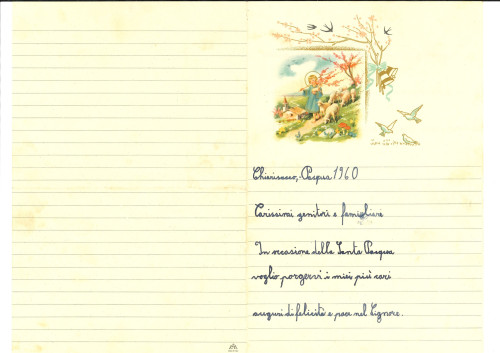 Chiesanuova, Pasqua 1960
Carissimi genitori e famigliari
In occasione della Santa Pasqua
voglio porgervi i miei più cari
auguri di felicità e pace nel Signore.